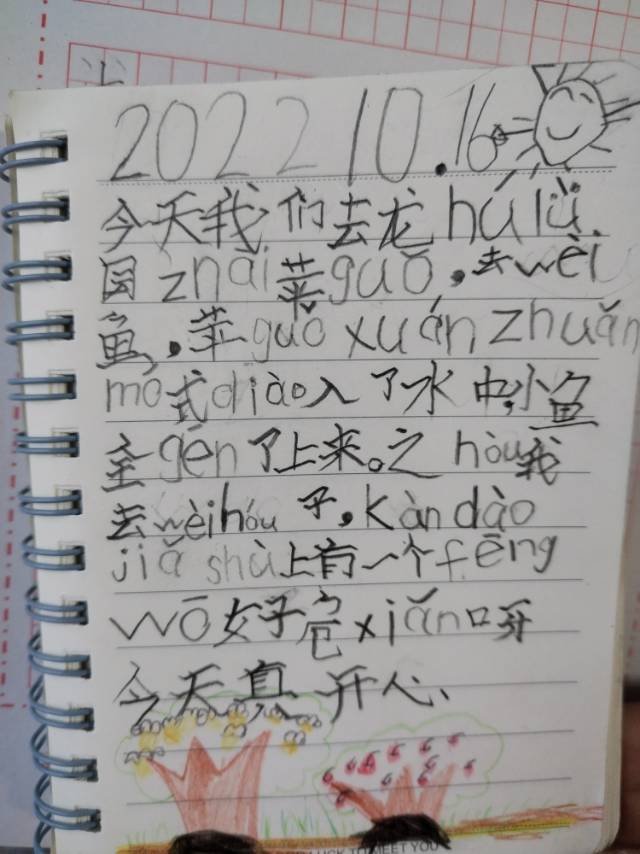 2022 10.16
今天我们去龙hú lǜ
园znǎi苹guǒ,去wèi
鱼,苹guǒ xuán zhuǎn
mó式diào入了水中,小鱼
全gēn了上来。之hòu我
去wèi hóu子,kàn dào
jiǎ shù上有一个fēng
wō好危xiǎn呀
今天真开心、
LUCK TO MEET YOU